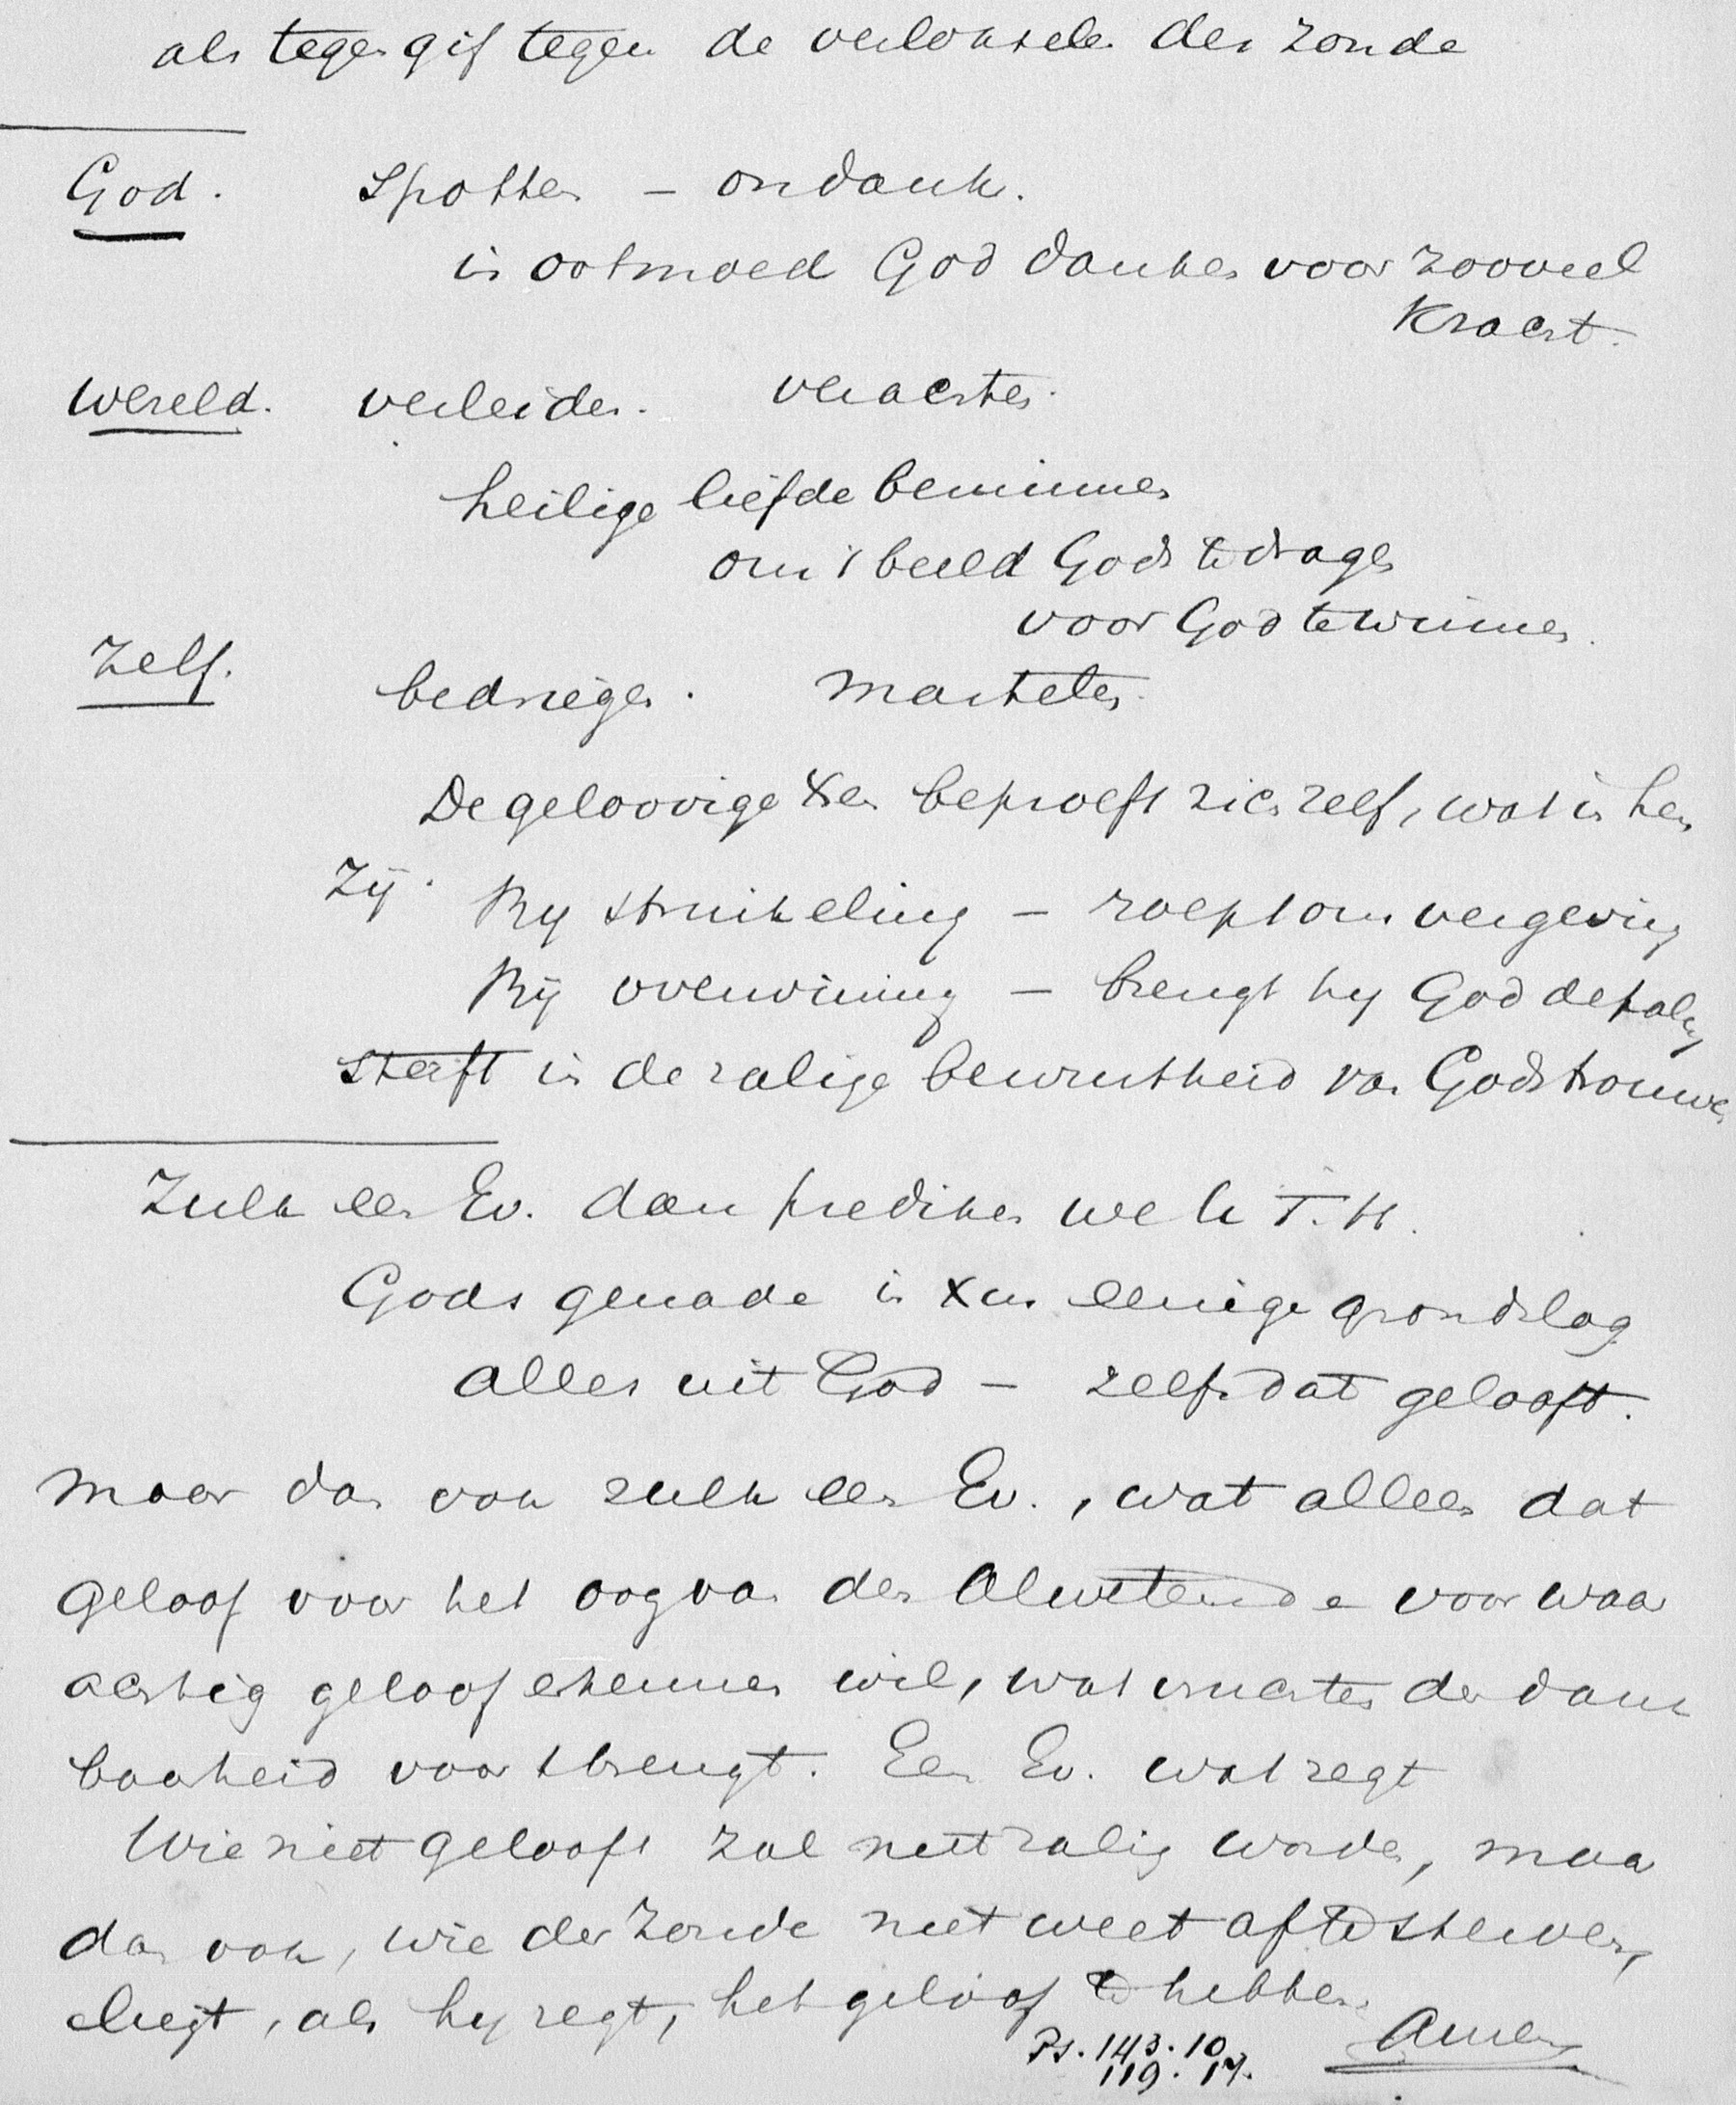 als tegengif tegen de verloksels der zonde
God. Spotten – ondank.
in ootmoed God danken voor zooveel
Kracht.
Wereld. verleiden. verachten.
heilige liefde beminnen
om 't beeld Gods te dragen
voor God te winnen.
Zelf. bedriegen. martelen.
De geloovige Xen beproeft zich zelf, wat in hem
zij. Bij struikeling – roept om vergeving
Bij overwinning – brengt hij God de palm
Sterft in de zalige bewustheid van Gods trouwe
Zulk een Ev. dan prediken we te T. H.
Gods genade in Xus eenige grondslag
alles uit God – zelfs dat gelooft.
maar dan ook zulk een Ev., wat alleen dat
geloof voor het oog van den Alwetende voor waar
achtig geloof erkennen wil, wat vruchten der dank
baarheid voortbrengt. Een Ev. wat zegt
Wie niet gelooft zal niet zalig worden, maar
dan ook, wie der zonde niet weet af te sterven,
liegt, als hij zegt, het geloof te hebben.
Amen
Ps. 143.10
119.17.